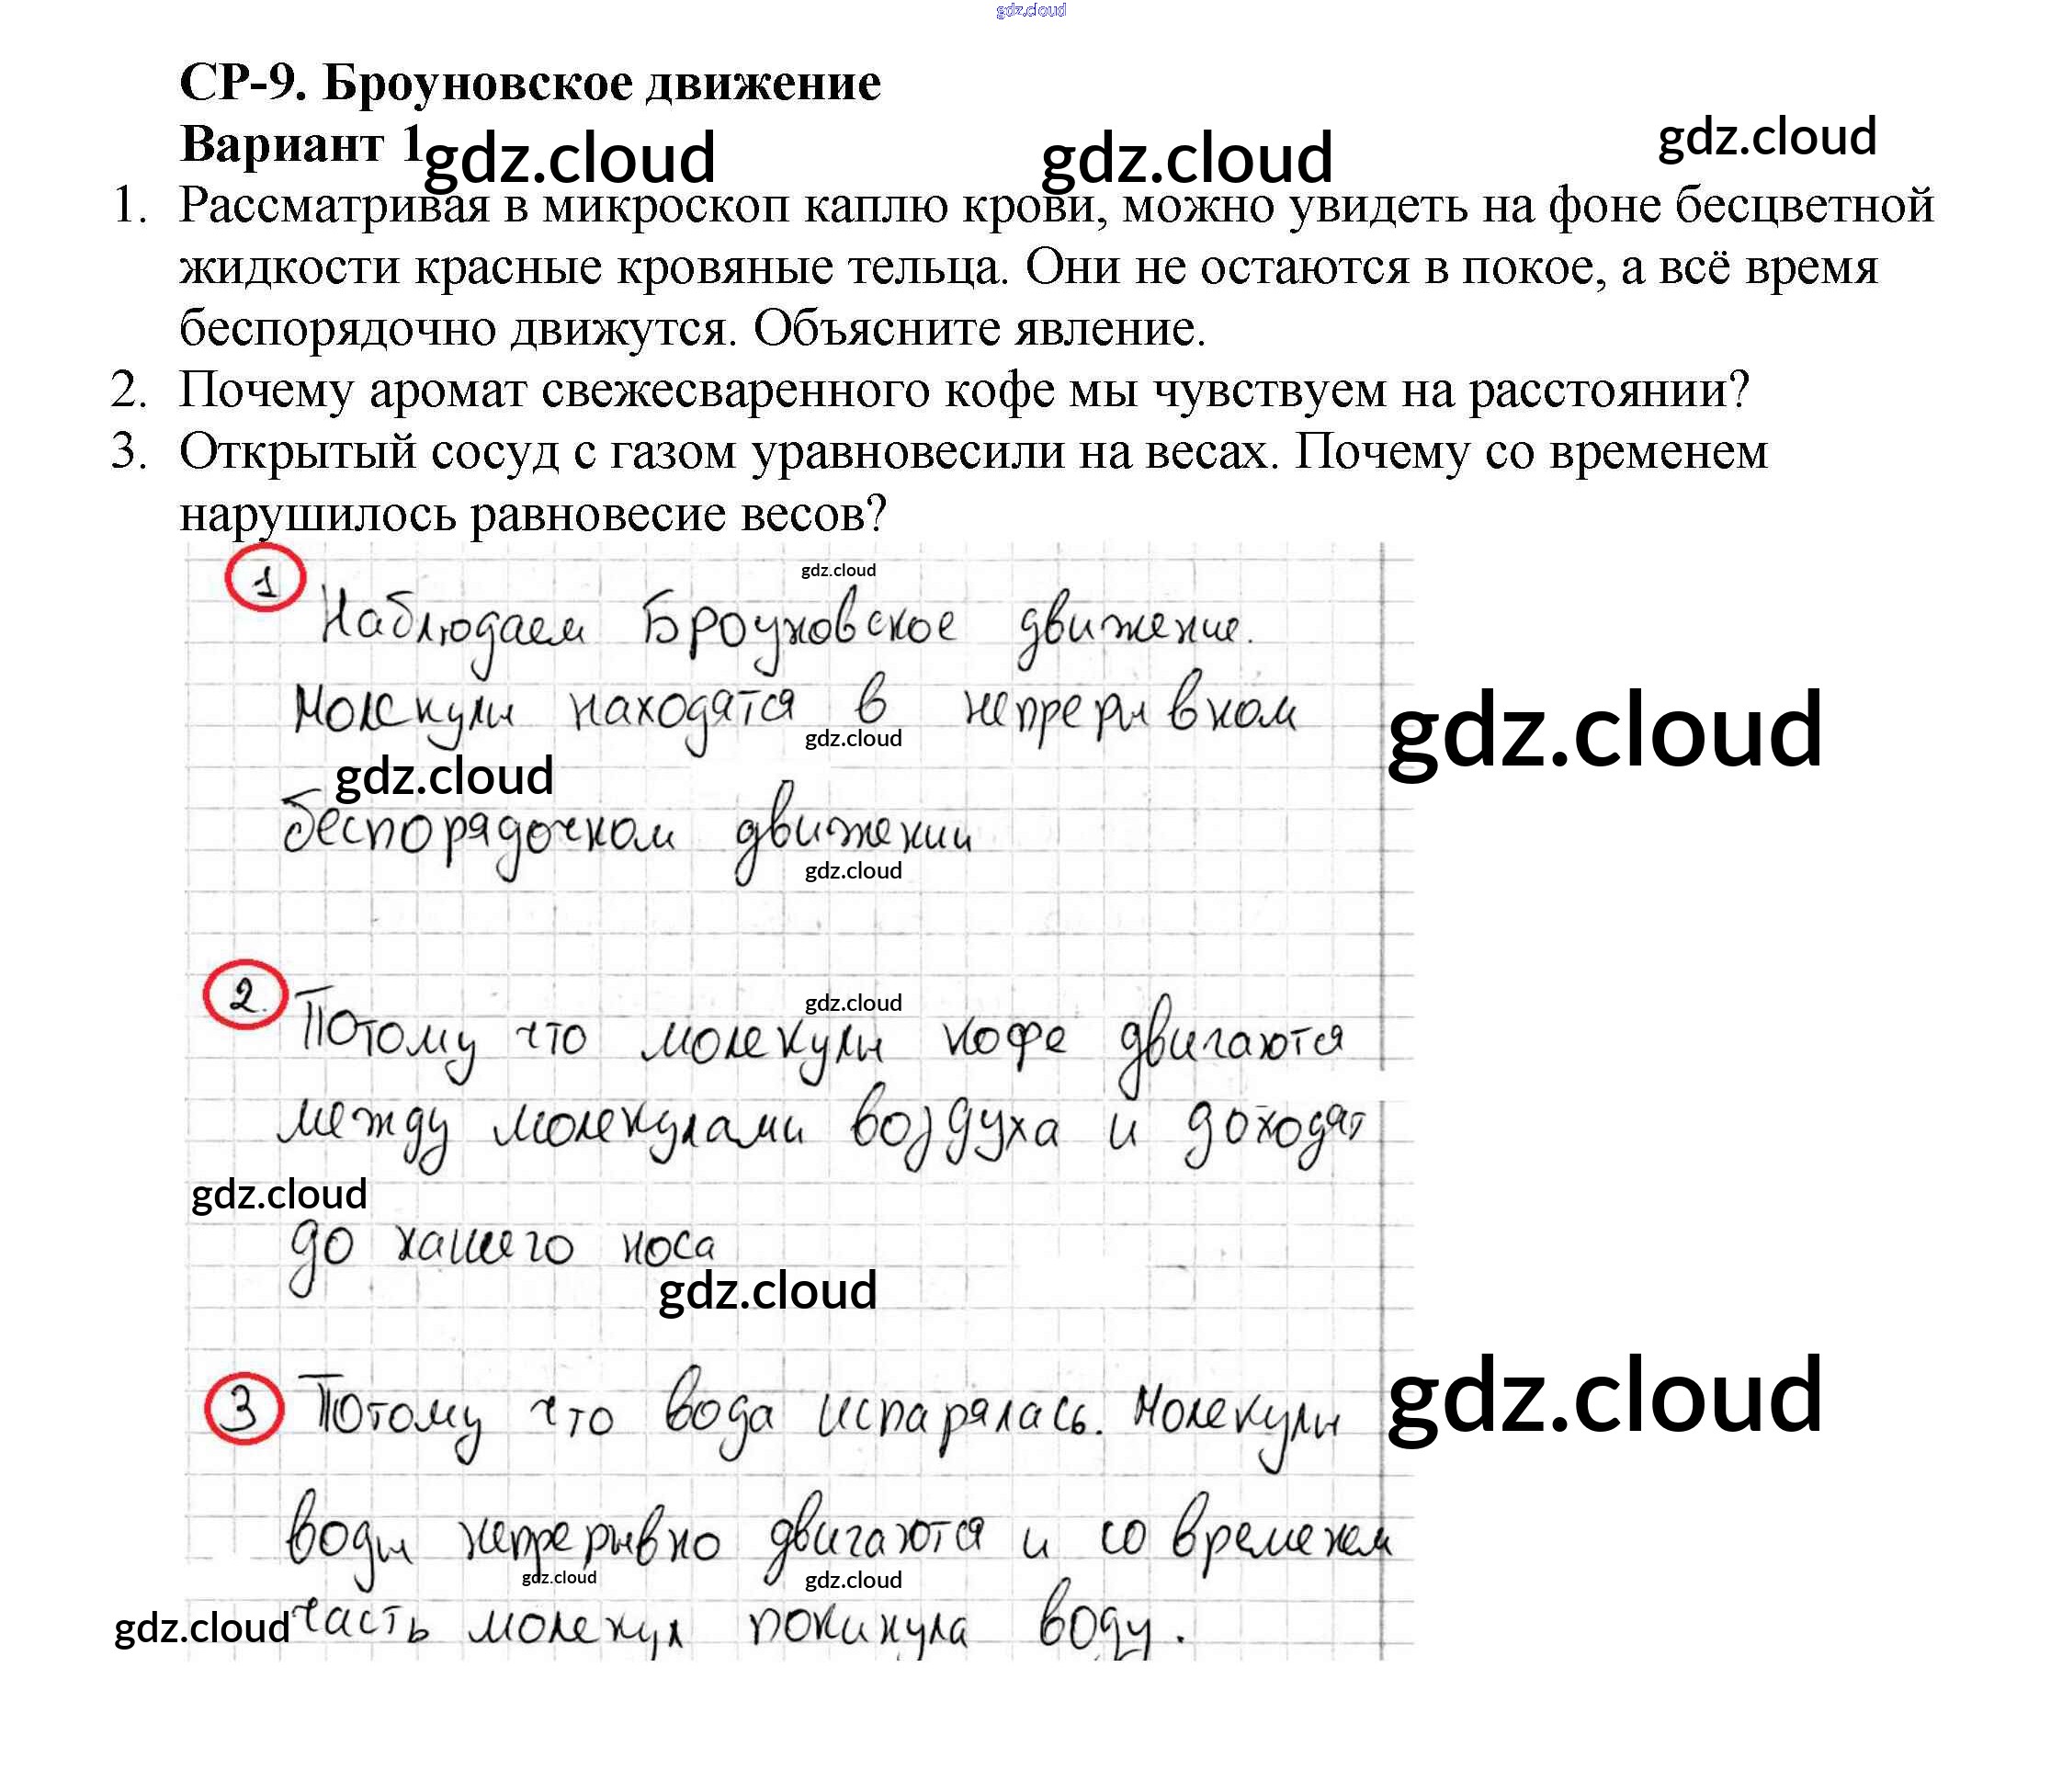 gdz.cloud
СР-9. Броуновское движение
Вариант 1
gdz.cloud
gdz.cloud
gdz.cloud
1. Рассматривая в микроскоп каплю крови, можно увидеть на фоне бесцветной
жидкости красные кровяные тельца. Они не остаются в покое, а всё время
беспорядочно движутся. Объясните явление.
2. Почему аромат свежесваренного кофе мы чувствуем на расстоянии?
3. Открытый сосуд с газом уравновесили на весах. Почему со временем
нарушилось равновесие весов?
gdz.cloud
1 Наблюдаем Броуновское движение.
Молекулы находятся в непрерывном
gdz.cloud
gdz.cloud
gdz.cloud
беспорядочном движении
gdz.cloud
gdz.cloud
2. Потому что молекулы кофе двигаются
между молекулами воздуха и доходят
gdz.cloud
до нашего носа
gdz.cloud
3 Потому что вода испарялась. Молекулы
gdz.cloud
воды непрерывно двигаются и со временем
gdz.cloud
gdz.cloud
gdz.cloud
часть молекул покинула воду.